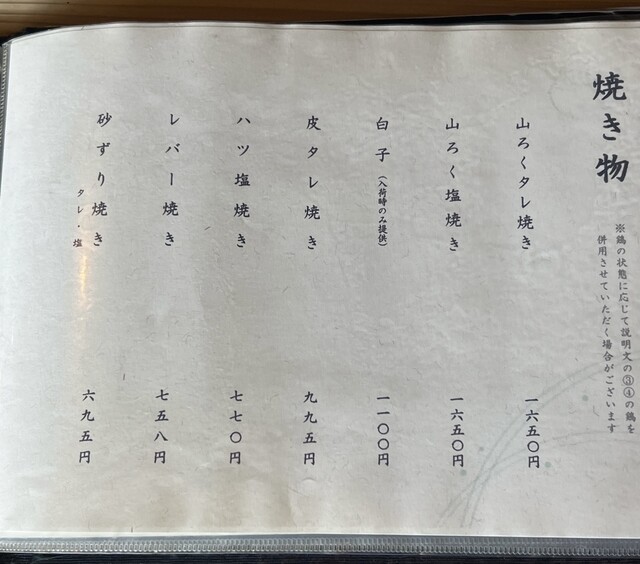 焼き物
※鶏の状態に応じて説明文の③④の鶏を
併用させていただく場合がございます
山ろくタレ焼き 一六五〇円
山ろく塩焼き 一六五〇円
白子(入荷時のみ提供) 一一〇〇円
皮タレ焼き 九九五円
ハツ塩焼き 七七〇円
レバー焼き 七五八円
砂ずり焼き 六九五円
タレ・塩